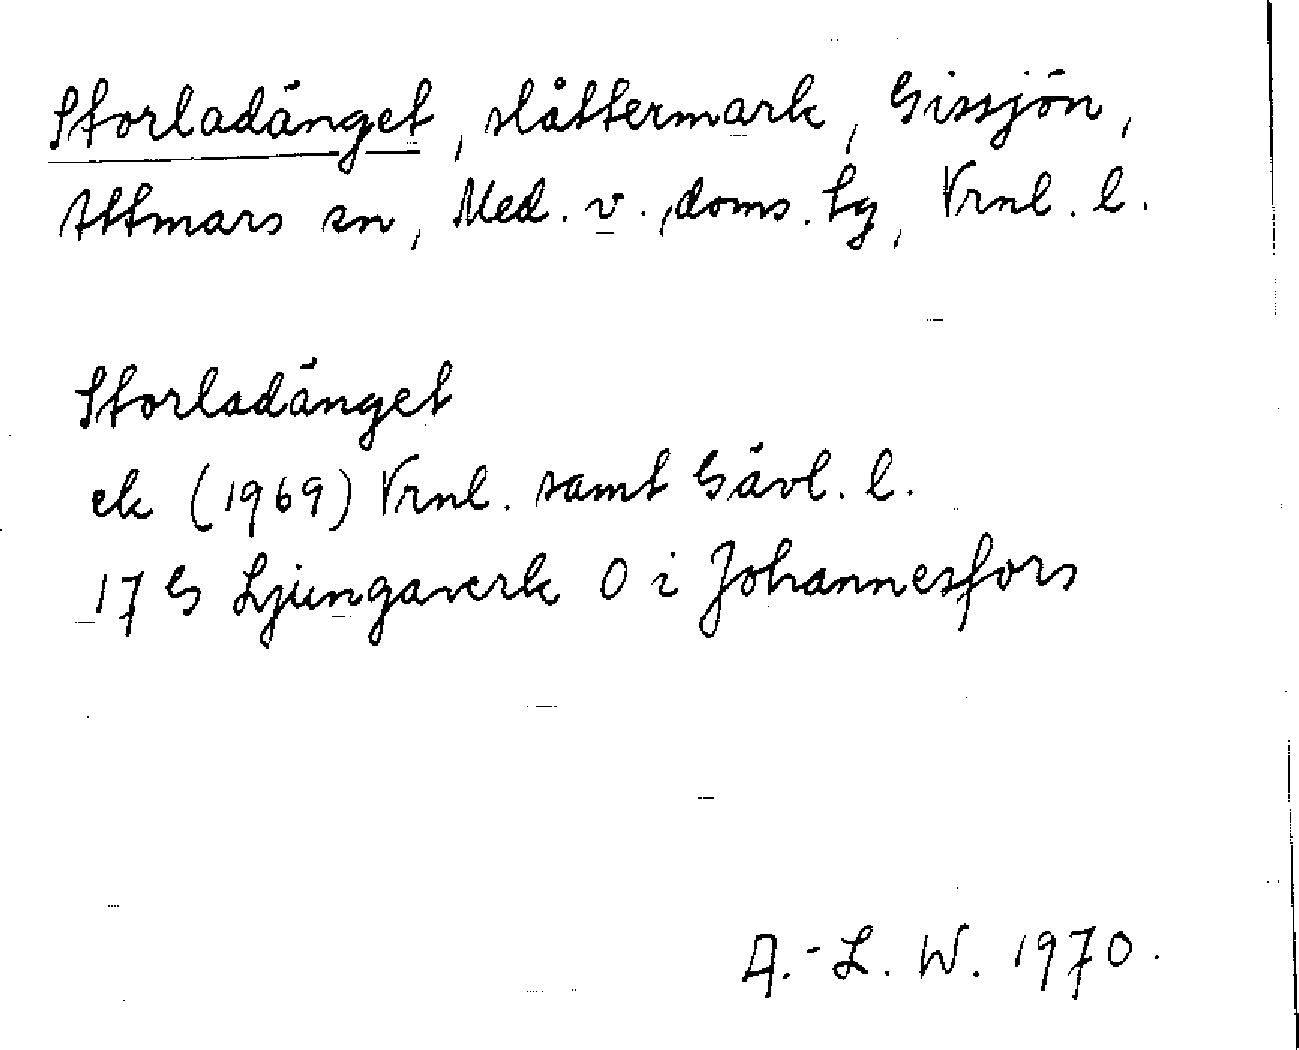 Storladänget, slåttermark, Gissjön,
Attmars sn, Med. v., doms. tg, Vrnl. l.
Storladänget
ek (1969) Vrnl. samt Gävl. l.
17 G Ljungaverk O i Johannesfors
A.-L. W. 1970.